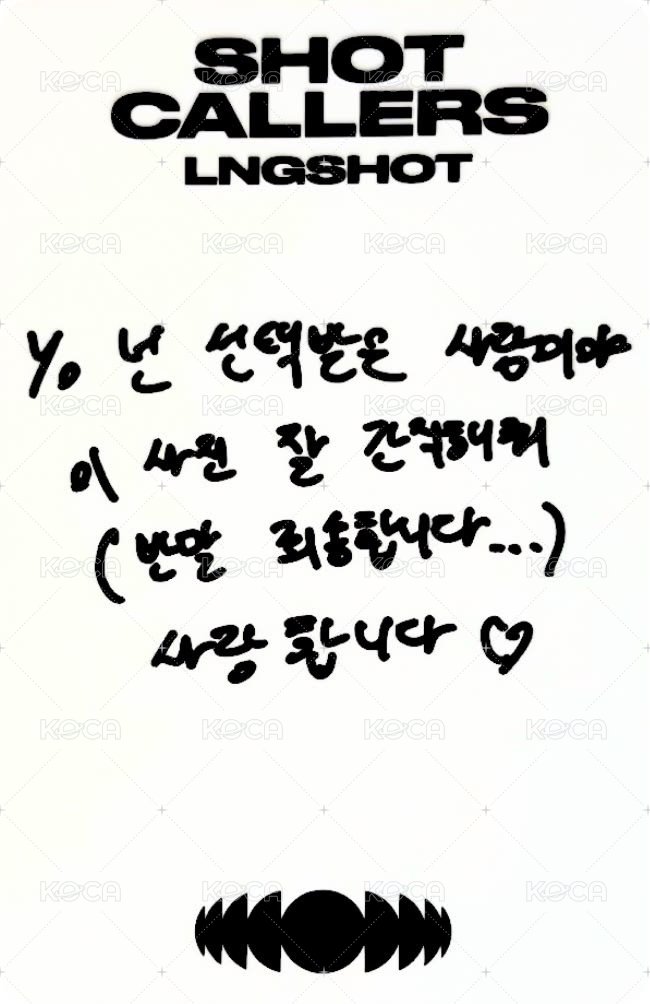 SHOT
CALLERS
LNGSHOT
Yo 넌 선택받은 사람이야
이 사진 잘 간직해줘
(반말 죄송합니다...)
사랑합니다 ♡